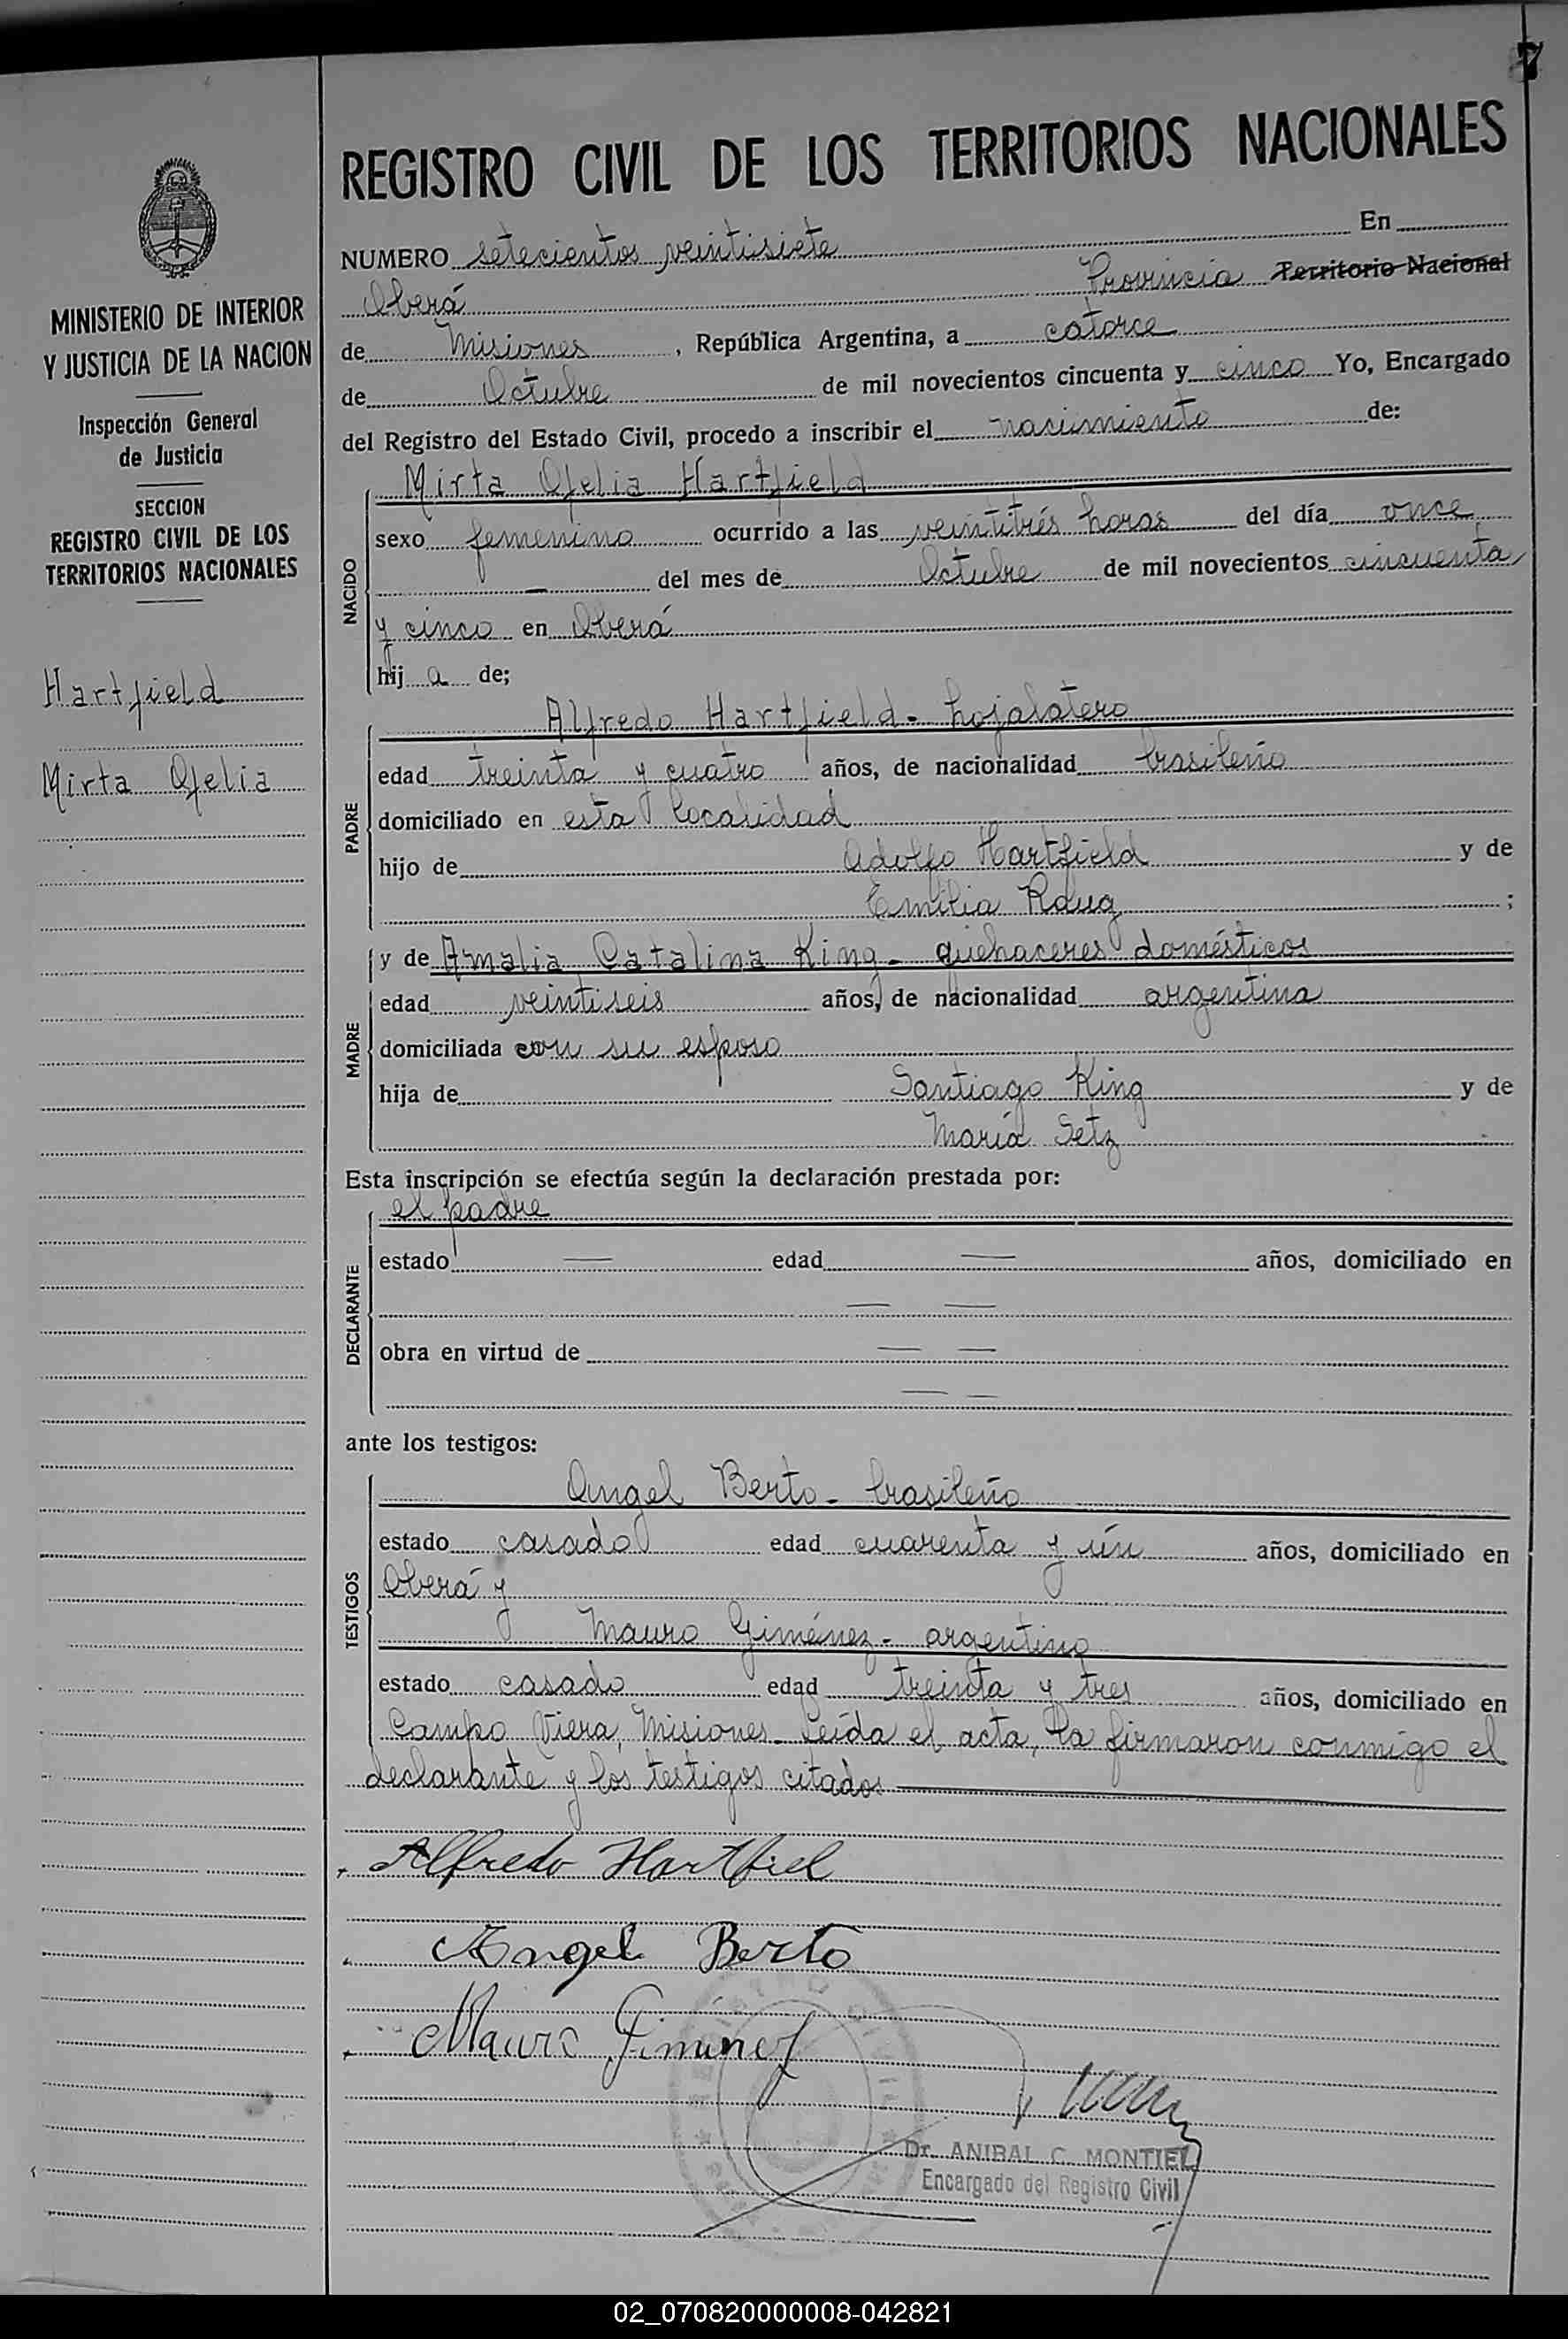 7
REGISTRO CIVIL DE LOS TERRITORIOS NACIONALES
MINISTERIO DE INTERIOR
Y JUSTICIA DE LA NACION
Inspección General
de Justicia
SECCION
REGISTRO CIVIL DE LOS
TERRITORIOS NACIONALES
Hartfield
Mirta Ofelia
NUMERO setecientos veintisiete En
Oberá Provincia Territorio Nacional
de Misiones, República Argentina, a catorce
de Octubre de mil novecientos cincuenta y cinco Yo, Encargado
del Registro del Estado Civil, procedo a inscribir el nacimiento de:
NACIDO
Mirta Ofelia Hartfield
sexo femenino ocurrido a las veintitrés horas del día once
— del mes de Octubre de mil novecientos cincuenta
y cinco en Oberá
hij a de;
PADRE
Alfredo Hartfield - hojalatero
edad treinta y cuatro años, de nacionalidad brasileño
domiciliado en esta localidad
hijo de Adolfo Hartfield y de
Emilia ;
MADRE
y de Amalia Catalina King - quehaceres domésticos
edad veintiseis años, de nacionalidad argentina
domiciliada con su esposo
hija de Santiago King y de
María Setz
Esta inscripción se efectúa según la declaración prestada por:
DECLARANTE
el padre
estado — edad — años, domiciliado en
— —
obra en virtud de — —
— —
ante los testigos:
TESTIGOS
Angel Berto - brasileño
estado casado edad cuarenta y ún años, domiciliado en
Oberá y
Mauro Giménez - argentino
estado casado edad treinta y tres años, domiciliado en
Campo Viera, Misiones. Leída el acta, la firmaron conmigo el
declarante y los testigos citados
Alfredo Hartfiel
Angel Berto
Mauro Gimenez
Dr. ANIBAL C. MONTIEL
Encargado del Registro Civil
02_070820000008-042821